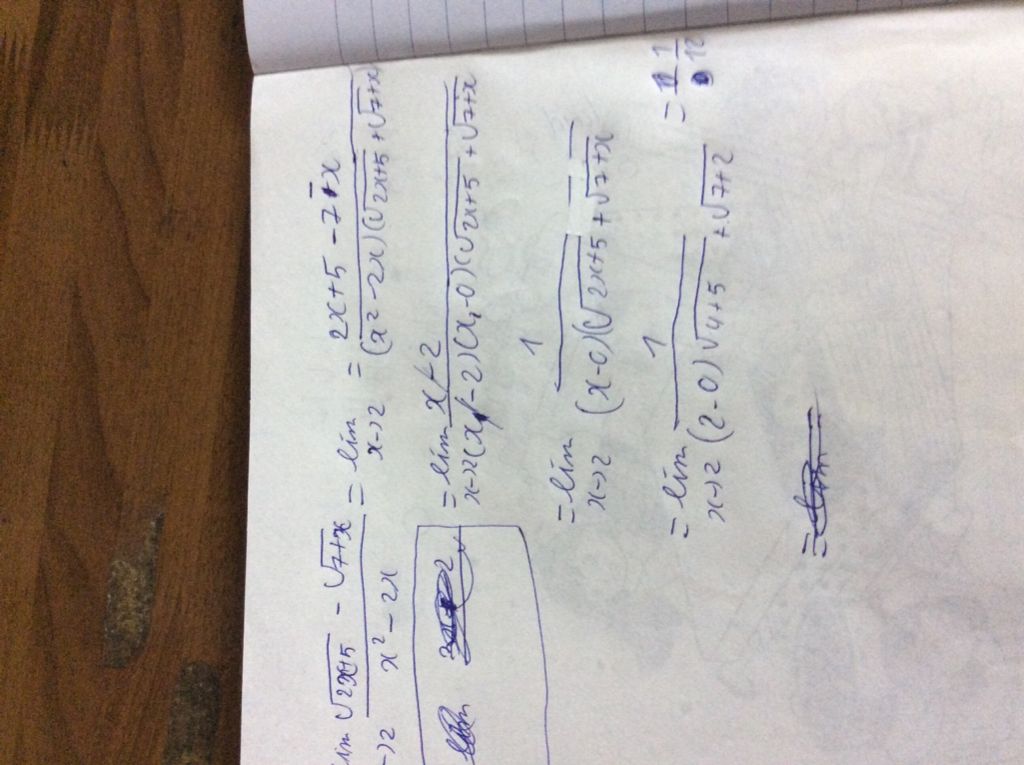 lim √2x+5 - √7+x / x² - 2x = lim x→2 = 2x+5 - 7+x / (x² - 2x)(√2x+5 + √7+x
= lim x→2 x-2 / (x-2)(x-0)(√2x+5 + √7+x
= lim x→2 1 / (x-0)(√2x+5 + √7+x
= lim x→2 1 / (2-0)√4+5 + √7+2 = 1/12